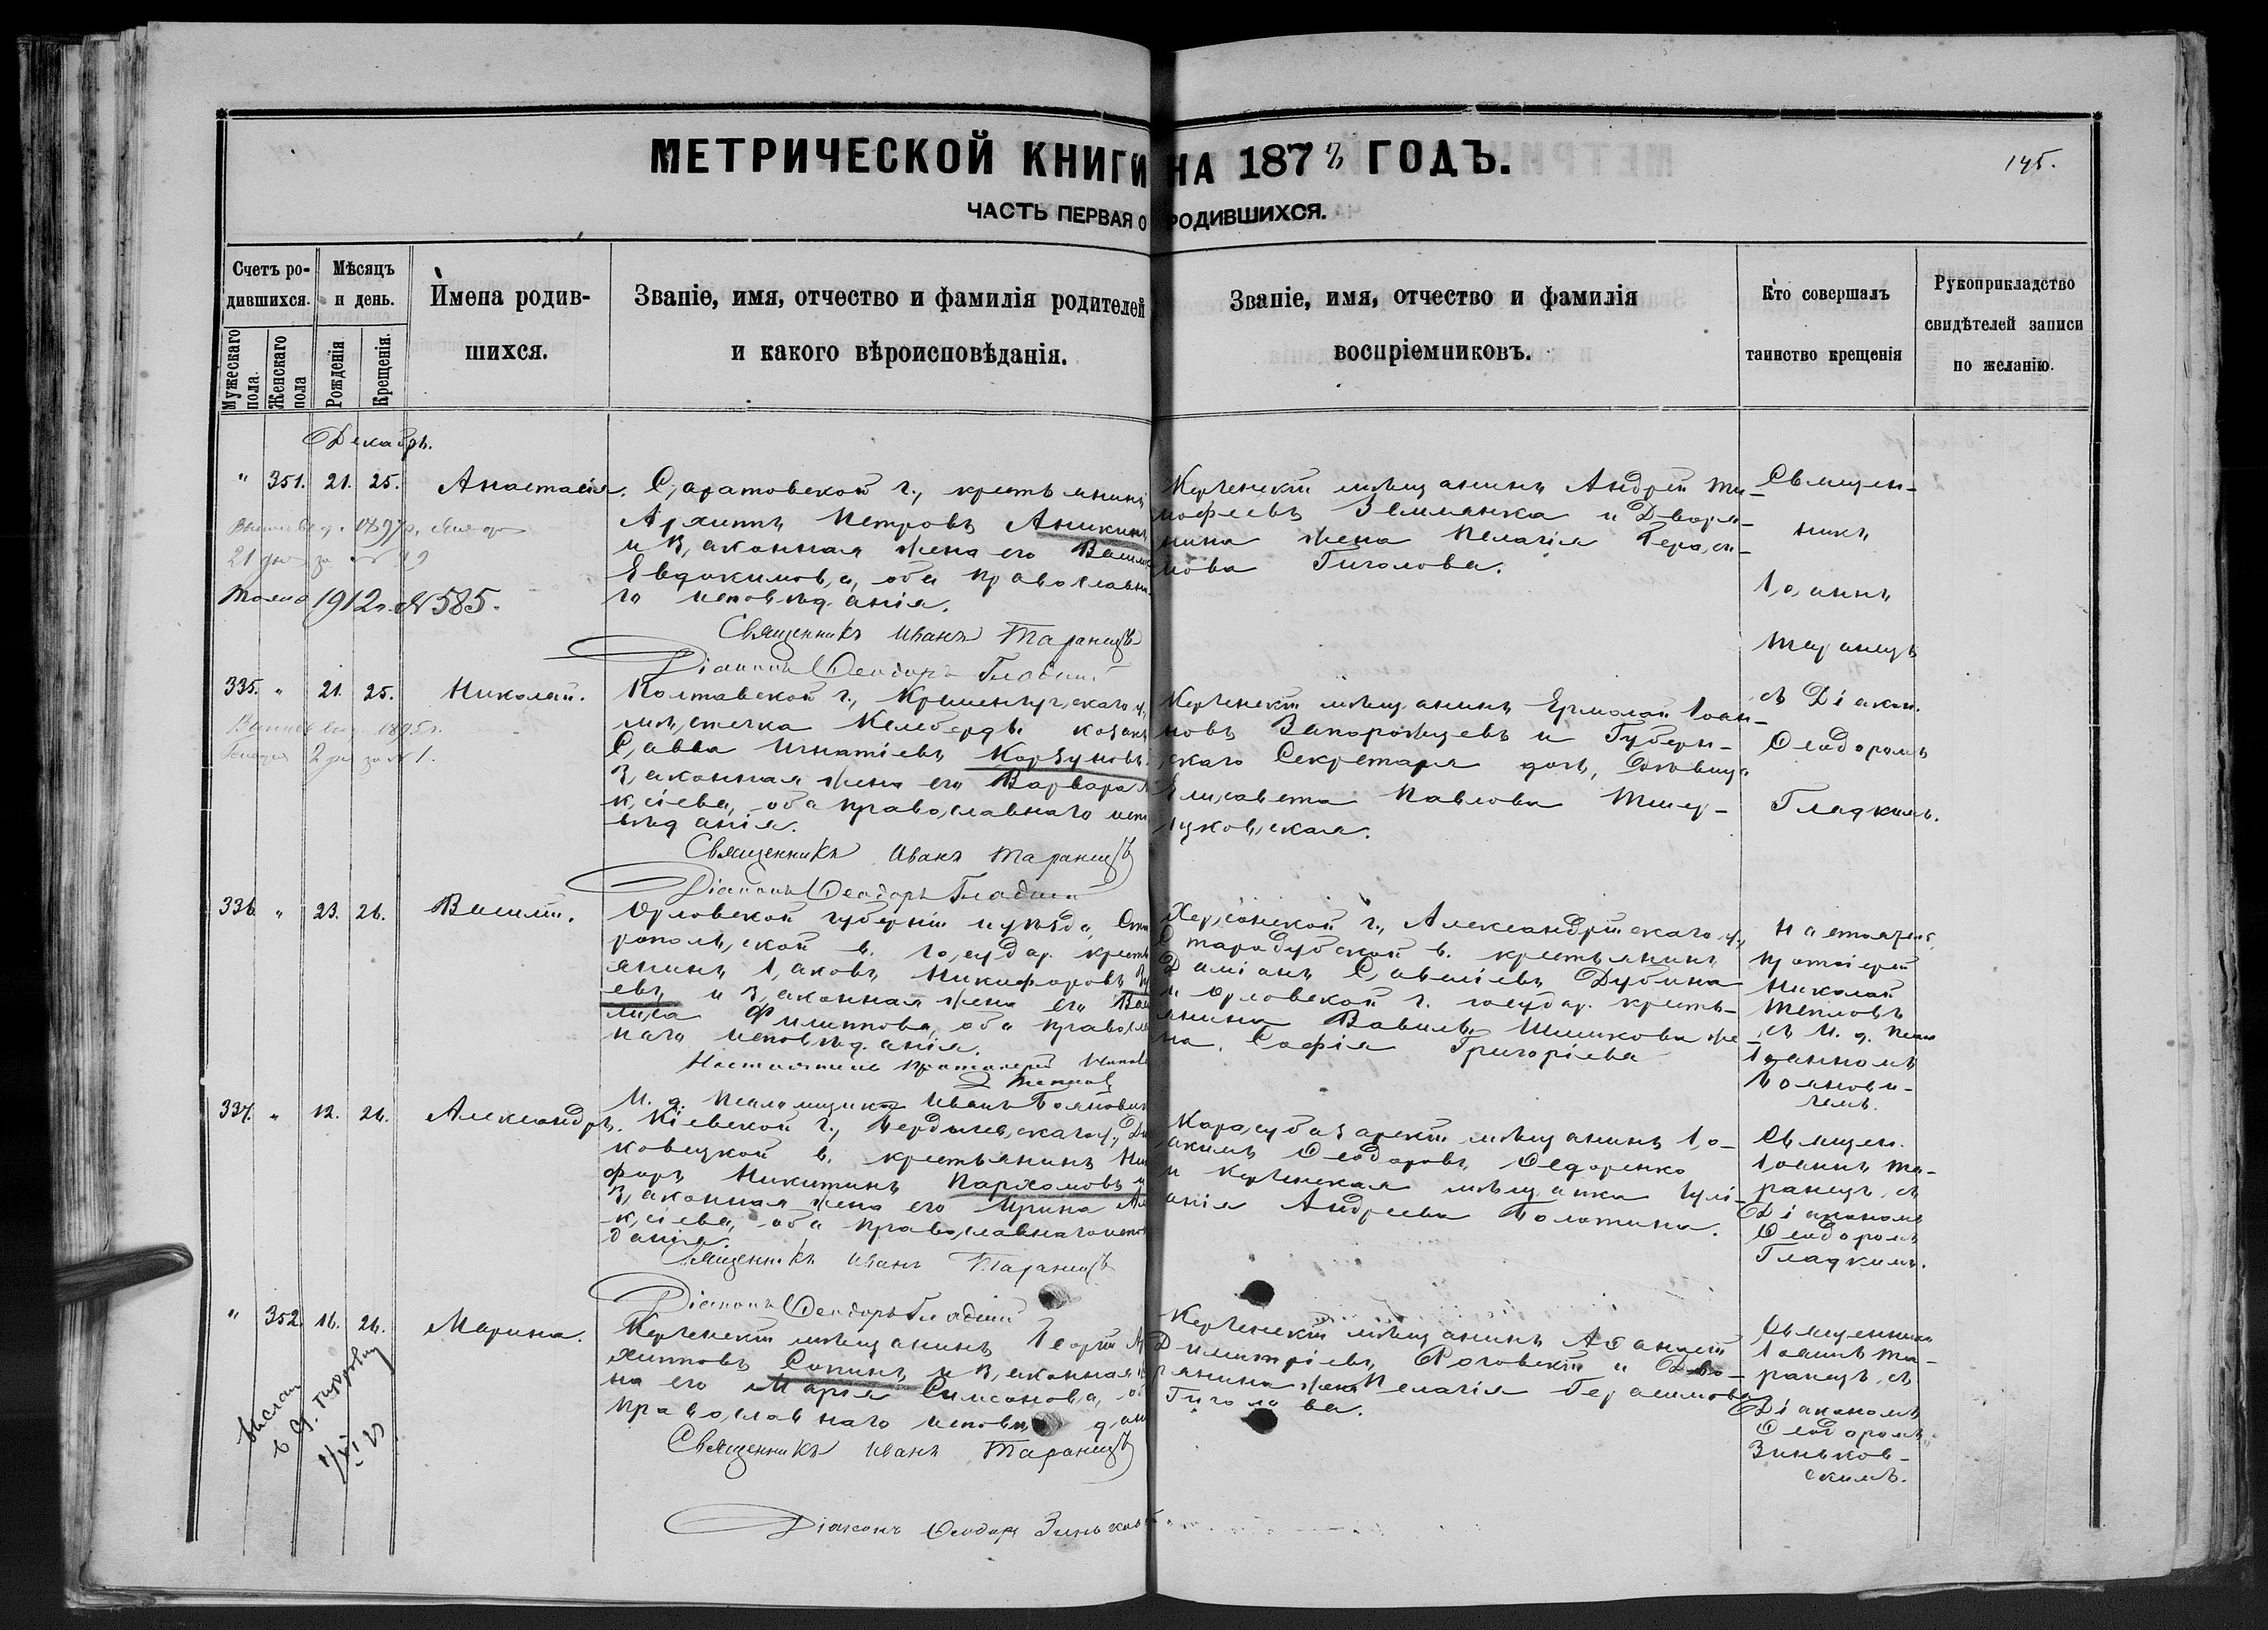 МЕТРИЧЕСКОЙ КНИГИ НА 187 ГОДЪ.
145.
ЧАСТЬ ПЕРВАЯ О РОДИВШИХСЯ.
Счетъ родившихся.
Мужескаго пола.
Женскаго пола
Мѣсяцъ и день.
Рожденія
Крещенія.
Имена родившихся.
Званіе, имя, отчество и фамилія родителей
и какого вѣроисповѣданія.
Званіе, имя, отчество и фамилія
воспріемниковъ.
Кто совершалъ
таинство крещенія
Рукоприкладство
свидѣтелей записи
по желанію.
Декабрь.
" 351. 21. 25. Анастасія.
Саратовской г., крестьянинъ
Архиппъ Петровъ Аникинъ
и законная жена его
Евдокимова, оба православна-
го исповѣданія.
Священникъ Иванъ Таранецъ
Діаконъ Ѳеодоръ Гладкій
Керченскій мѣщанинъ Андрей Ти-
мофеевъ Землянка и Дворя-
нина жена Пелагія Гераси-
мова Гиголова.
Священ-
никъ
Іоаннъ
Таранецъ
съ Діакон.
Ѳеодоромъ
Гладкимъ.
1897
21
1912 г. № 585.
335. " 21. 25. Николай.
1895 г.
2 дня за № 1.
Полтавской г., Кременчугскаго у.,
мѣстечка Келеберды козакъ
Савва Игнатіевъ Корзуновъ
законная жена его Варвара
ксіева, оба православнаго испо
вѣданія.
Священникъ Иванъ Таранецъ
Діаконъ Ѳеодоръ Гладкій
Керченскій мѣщанинъ Ермолай Іоан-
новъ Запорожцевъ и Губерн-
скаго Секретаря дочь, дѣвица
Елисавета Павлова
336. " 23. 26. Василій.
Орловской губерніи и уѣзда,
ропольской в. государ. кресть
янинъ Іаковъ Никифоровъ
евъ и законная жена его
лиса Филиппова, оба правосла
наго исповѣданія.
Настоятель Протоіерей
Тепловъ
И. д. Псаломщика Иванъ Бояновичъ
Херсонской г., Александрійскаго у.,
Стародубской в. крестьянинъ
Даміанъ Савеліевъ Дубина
и Орловской г. государ. кресть-
янина Вавилы Шишкова же-
на, Софія Григоріева
Настоятель,
протоіерей
Николай
Тепловъ
съ И. д. Псал
Іоанномъ
Боянови-
чемъ.
337. " 12. 26. Александръ.
Кіевской г., Бердичевскаго у.,
ковецкой в. крестьянинъ Ни
форъ Никитинъ Пархомовъ и
законная жена его Ирина Ал
ксіева, оба православнаго испов
данія.
Священникъ Иванъ Таранецъ
Діаконъ Ѳеодоръ Гладкій
Карасубазарскій мѣщанинъ Іо-
акимъ Ѳеодоровъ Ѳедоренко
и Керченская мѣщанка Іулі-
анія Андреева Болотина.
Священ.
Іоаннъ Та-
ранецъ съ
Діакономъ
Ѳеодоромъ
Гладкимъ.
" 352. 16. 26. Марина.
1/XI 23
Керченскій мѣщанинъ Георгій Ар
хипповъ Сопинъ и законная
на его Марія Симеонова, об
православнаго исповѣдан
Священникъ Иванъ Таранецъ
Діаконъ Ѳеодоръ Зиньковск
Керченскій мѣщанинъ Аѳанасій
Димитріевъ Роговскій и Дво-
рянина жена Пелагія Герасимова
Гиголова.
Священникъ
Іоаннъ Та-
ранецъ съ
Діакономъ
Ѳеодоромъ
Зиньков-
скимъ.